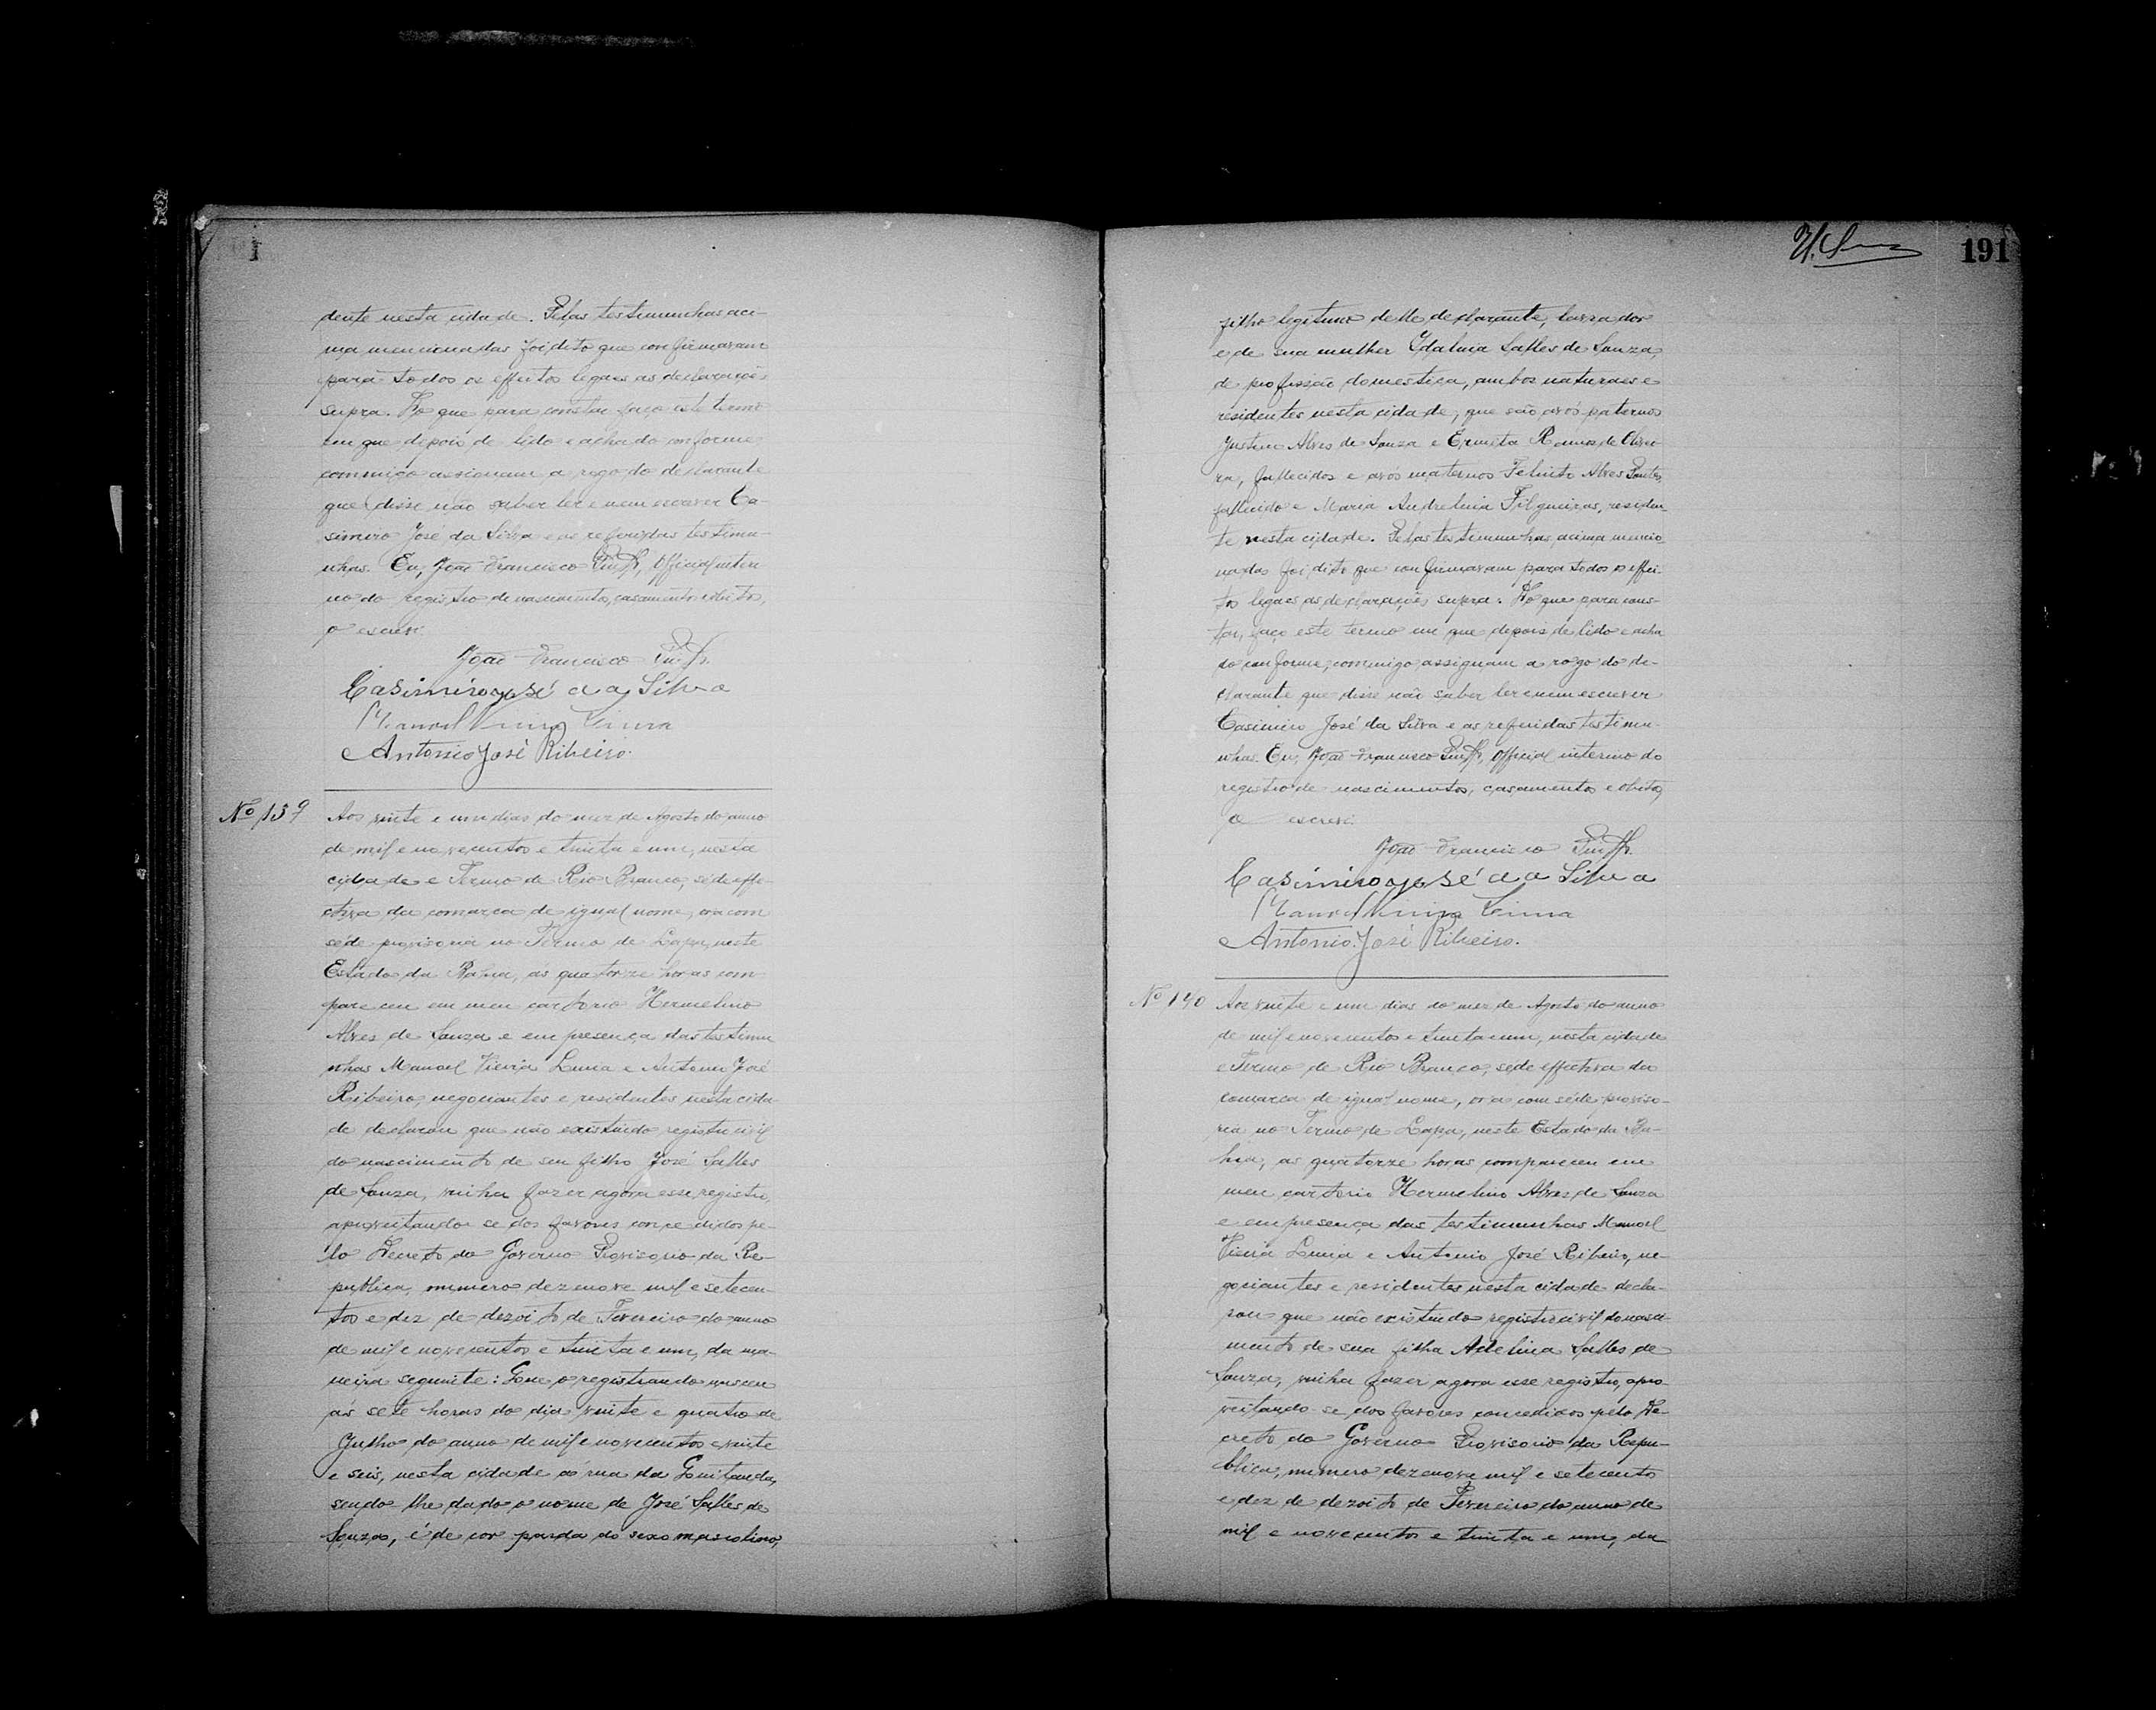 dente nesta cidade. Pelas testimunhas aci-
ma mencionadas foi dito que confirmavam
para todos os effeitos legaes as declarações
supra. Do que para constar faço este termo
em que depois de lido e achado conforme,
commigo assignam a rogo do declarante
que disse não saber ler e nem escrever Ca-
simiro José da Silva e as referidas testimu-
nhas. Eu, João Francisco, Official interi-
no do registro de nascimentos, casamentos e obitos,
o escrevi.
João Francisco
Casimiro José da Silva
Manoel Vieira Lima
Antonio José Ribeiro.
No 139
Aos vinte e um dias do mez de Agosto do anno
de mil e novecentos e trinta e um, nesta
cidade e Termo de Rio Branco, séde effe-
ctiva da comarca de igual nome, ora com
séde provisoria no Termo de Lapa, neste
Estado da Bahia, ás quatorze horas com-
pareceu em meu cartorio Hermelino
Alves de Souza e em presença das testimu
nhas Manoel Vieira Lima e Antonio José
Ribeiro, negociantes e residentes nesta cida-
de declarou que não existindo registro civil
do nascimento de seu filho José Salles
de Souza, vinha fazer agora esse registro,
aproveitando-se dos favores concedidos pe-
lo Decreto do Governo Provisorio da Re-
publica, numero dezenove mil e setecen-
tos e dez de dezoito de Fevereiro do anno
de mil e novecentos e trinta e um, da ma-
neira seguinte: Que o registrando nasceu
ás sete horas do dia vinte e quatro de
Julho do anno de mil e novecentos e vinte
e seis, nesta cidade á rua da Quitanda,
sendo-lhe dado o nome de José Salles de
Souza, é de cor parda do sexo masculino,
191
filho legitimo delle declarante, lavrador
e de sua mulher Idalina Salles de Souza,
de profissão domestica, ambos naturaes e
residentes nesta cidade, que são avós paternos
Justino Alves de Souza e Ermita Ramos de Olivei-
ra, fallecidos e avós maternos Felinto Alves Santos,
fallecido e Maria Andrelina Filgueiras, residen-
te nesta cidade. Pelas testimunhas acima mencio-
nadas foi dito que confirmavam para todos os effei-
tos legaes as declarações supra. Do que para cons-
tar, faço este termo em que depois de lido e acha
do conforme, commigo assignam a rogo do de-
clarante que disse não saber ler e nem escrever
Casimiro José da Silva e as referidas testimu-
nhas. Eu, João Francisco, Official interino do
registro de nascimentos, casamentos e obitos,
o escrevi.
João Francisco
Casimiro José da Silva
Manoel Vieira Lima
Antonio José Ribeiro.
No 140
Aos vinte e um dias do mez de Agosto do anno
de mil e novecentos e trinta e um, nesta cidade
e Termo de Rio Branco, séde effectiva da
comarca de igual nome, ora com séde proviso-
ria no Termo de Lapa, neste Estado da Ba-
hia, as quatorze horas compareceu em
meu cartorio Hermelino Alves de Souza
e em presença das testimunhas Manoel
Vieira Lima e Antonio José Ribeiro, ne-
gociantes e residentes nesta cidade decla-
rou que não existindo registro civil do nasci-
mento de sua filha Adelina Salles de
Souza, vinha fazer agora esse registro, apro-
veitando-se dos favores concedidos pelo De-
creto do Governo Provisorio da Repu-
blica, numero dezenove mil e setecento
e dez de dezoito de Fevereiro do anno de
mil e novecentos e trinta e um, da